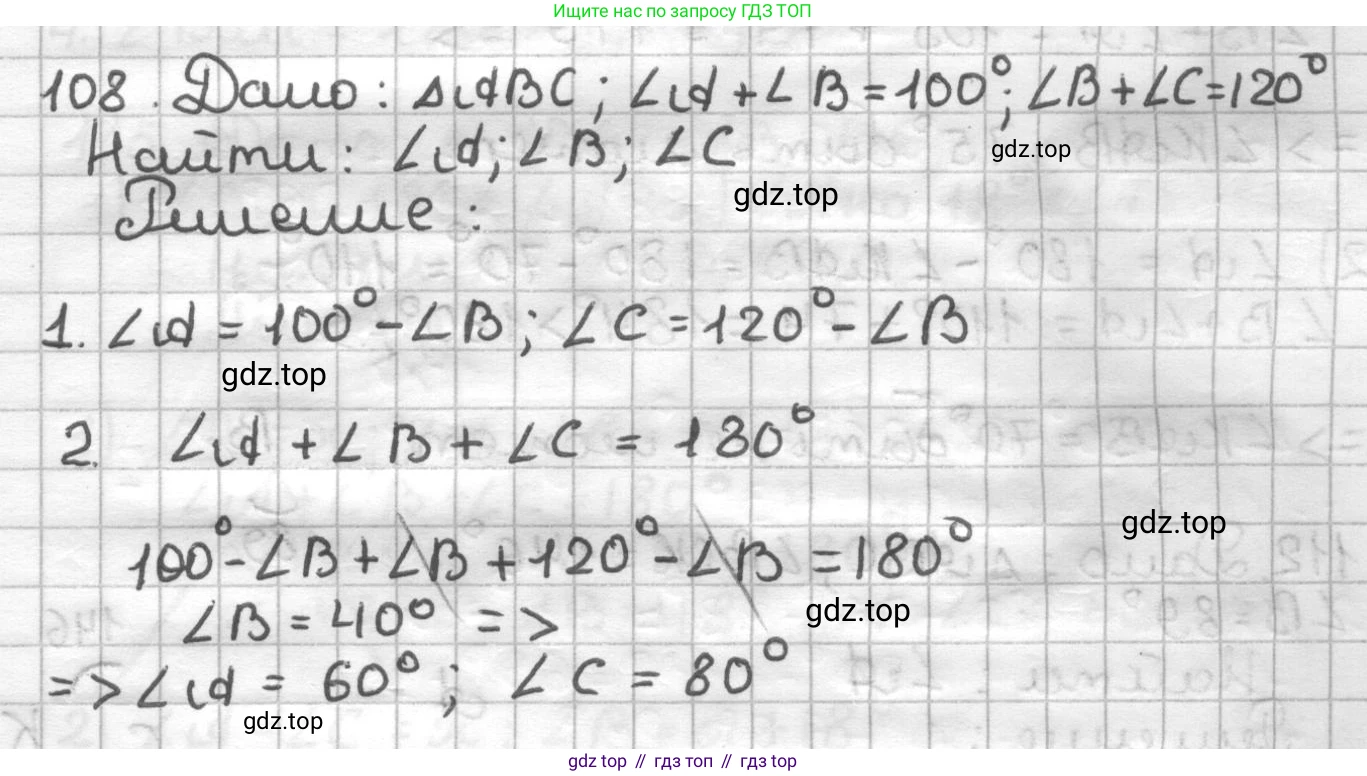 Ищите нас по запросу ГДЗ ТОП
108. Дано: ΔABC; ∠A + ∠B = 100°; ∠B + ∠C = 120°
gdz.top
Найти: ∠A; ∠B; ∠C
gdz.top
Решение:
1. ∠A = 100° - ∠B; ∠C = 120° - ∠B
gdz.top
2. ∠A + ∠B + ∠C = 180°
gdz.top
100° - ∠B + ∠B + 120° - ∠B = 180°
gdz.top
∠B = 40° =>
=> ∠A = 60°; ∠C = 80°
gdz.top
gdz top // гдз топ // гдз top